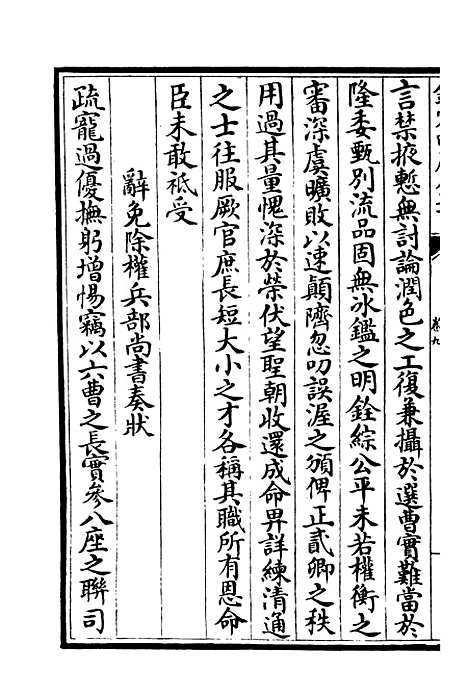 卷九
言禁掖慙無討論潤色之工復兼攝於選曹實難當於
隆委甄別流品固無冰鑑之明銓綜公平未若權衡之
審深虞曠敗以速顛隮忽叨誤渥之頒俾正貳卿之秩
用過其量愧深於榮伏望聖朝收還成命畀詳練清通
之士往服厥官庶長短大小之才各稱其職所有恩命
臣未敢祗受
辭免除權兵部尚書奏狀
疏寵過優撫躬增惕竊以六曹之長實參八座之聯司